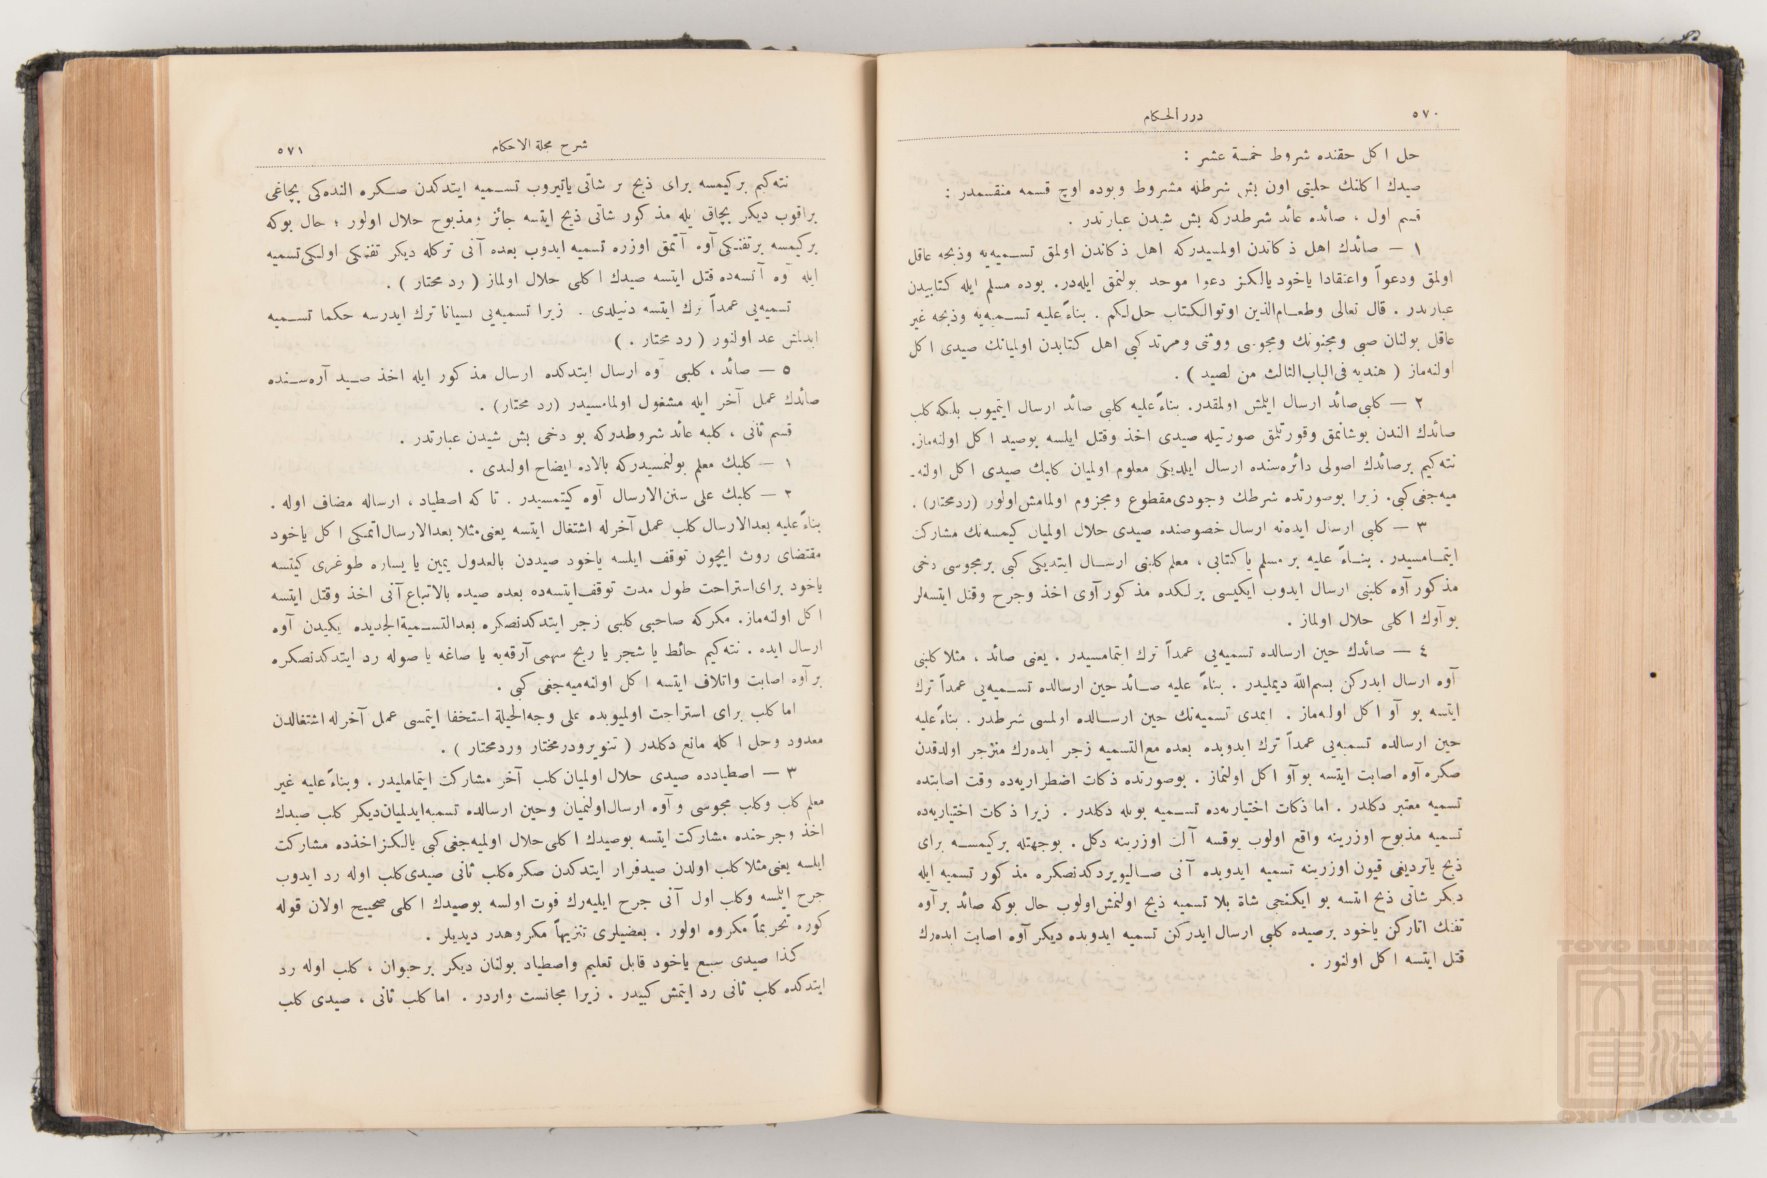 ٥٧٠
درر الحكام
حل اكل حقنده شروط خمسة عشر :
صيدك اكلنك حليتى اون بش شرطله مشروط وبوده اوچ قسمه منقسمدر :
قسم اول ، صائده عائد شرطدركه بش شيدن عبارتدر .
١ — صائدك اهل ذكاتدن اولمسيدركه اهل ذكاتدن اولمق تسميه‌يه وذبحه عاقل
اولمق ودعواً واعتقادا ياخود يالكز دعوا موحد بولنمق ايله‌در. بوده مسلم ايله كتابيدن
عبارتدر . قال تعالى وطعام‌الذين اوتوالكتاب حل‌لكم . بناءً عليه تسميه‌يه وذبحه غير
عاقل بولنان صبى ومجنونك ومجوسى ووثنى ومرتد كبى اهل كتابدن اولميانك صيدى اكل
اولنه‌ماز ( هنديه فى‌الباب‌الثالث من لصيد ) .
٢ — كلبى صائد ارسال ايلمش اولمقدر. بناءً عليه كلبى صائد ارسال ايتميوب بلكه كلب
صائدك الندن بوشانمق وقورتلمق صورتيله صيدى اخذ وقتل ايلسه بوصيد اكل اولنه‌ماز.
نته‌كيم برصائدك اصولى دائره‌سنده ارسال ايلديكى معلوم اولميان كلبك صيدى اكل اولنه‌ـ
ميه‌جغى كبى. زيرا بوصورتده شرطك وجودى مقطوع ومجزوم اولمامش اولور (ردمحتار) .
٣ — كلبى ارسال ايدنه ارسال خصوصنده صيدى حلال اولميان كيمسه‌نك مشاركت
ايتمامسيدر . بناءً عليه بر مسلم ياكتابى ، معلم كلبنى ارسال ايتديكى كبى برمجوسى دخى
مذكور آوه كلبنى ارسال ايدوب ايكيسى برلكده مذكور آوى اخذ وجرح وقتل ايتسه‌لر
بو آوك اكلى حلال اولماز .
٤ — صائدك حين ارسالده تسميه‌يى عمداً ترك ايتمامسيدر . يعنى صائد ، مثلا كلبنى
آوه ارسال ايدركن بسم‌الله ديمليدر . بناءً عليه صائد حين ارسالده تسميه‌يى عمداً ترك
ايتسه بو آو اكل اولنه‌ماز . ايمدى تسميه‌نك حين ارسالده اولمسى شرطدر . بناءً عليه
حين ارسالده تسميه‌يى عمداً ترك ايدوبده بعده مع‌التسميه زجر ايده‌رك منزجر اولدقدن
صكره آوه اصابت ايتسه بو آو اكل اولنماز . بوصورتده ذكات اضطراريه‌ده وقت اصابتده
تسميه معتبر دكلدر . اما ذكات اختياريه‌ده تسميه بويله دكلدر . زيرا ذكات اختياريه‌ده
تسميه مذبوح اوزرينه واقع اولوب يوقسه آلت اوزرينه دكل . بوجهتله بركيمسه براى
ذبح ياترديغى قيون اوزرينه تسميه ايدوبده آنى صاليويردكدنصكره مذكور تسميه ايله
ديكر شاتى ذبح ايتسه بو ايكنجى شاة بلا تسميه ذبح اولنمش اولوب حال بوكه صائد بر آوه
تفنك اتاركن ياخود برصيده كلبى ارسال ايدركن تسميه ايدوبده ديكر آوه اصابت ايده‌رك
قتل ايتسه اكل اولنور .
شرح مجلة الاحكام
٥٧١
نته‌كيم بركيمسه براى ذبح بر شاتى ياتيروب تسميه ايتدكدن صكره النده‌كى بچاغى
براقوب ديكر بچاق ايله مذكور شاتى ذبح ايتسه جائز ومذبوح حلال اولور ؛ حال بوكه
بركيمسه برتفنكى آوه آتمق اوزره تسميه ايدوب بعده آنى تركله ديكر تفنكى اولكى تسميه
ايله آوه آتسه‌ده قتل ايتسه صيدك اكلى حلال اولماز ( رد محتار ) .
تسميه‌يى عمداً ترك ايتسه دنيلدى . زيرا تسميه‌يى نسيانا ترك ايدرسه حكما تسميه
ايدلمش عد اولنور ( رد محتار . )
٥ — صائد ، كلبى آوه ارسال ايتدكده ارسال مذكور ايله اخذ صيد آره‌سنده
صائدك عمل آخر ايله مشغول اولمامسيدر (رد محتار) .
قسم ثانى ، كلبه عائد شروطدركه بو دخى بش شيدن عبارتدر .
١ — كلبك معلم بولنمسيدركه بالاده ايضاح اولندى .
٢ — كلبك على سنن‌الارسال آوه كيتمسيدر . تا كه اصطياد ، ارساله مضاف اوله .
بناءً عليه بعدالارسال كلب عمل آخرله اشتغال ايتسه يعنى مثلا بعدالارسال اتمكى اكل ياخود
مقتضاى روث ايچون توقف ايلسه ياخود صيددن بالعدول يمين يا يساره طوغرى كيتسه
ياخود براى استراحت طول مدت توقف ايتسه‌ده بعده صيده بالاتباع آنى اخذ وقتل ايتسه
اكل اولنه‌ماز. مكركه صاحبى كلبى زجر ايتدكدنصكره بعدالتسميةالجديده يكيدن آوه
ارسال ايده . نته‌كيم حائط يا شجر يا ريح سهمى آرقه‌يه يا صاغه يا صوله رد ايتدكدنصكره
بر آوه اصابت واتلاف ايتسه اكل اولنه‌ميه‌جغى كبى .
اما كلب براى استراحت اولميوبده على وجه‌الحيلة استخفا ايتمسى عمل آخرله اشتغالدن
معدود وحل اكله مانع دكلدر ( تنويرودرمختار وردمحتار ) .
٣ — اصطيادده صيدى حلال اولميان كلب آخر مشاركت ايتمامليدر . وبناءً عليه غير
معلم كلب وكلب مجوسى و آوه ارسال اولنميان وحين ارسالده تسميه ايدلميان ديكر كلب صيدك
اخذ وجرحنده مشاركت ايتسه بوصيدك اكلى حلال اولميه‌جغى كبى يالكز اخذده مشاركت
ايلسه يعنى مثلا كلب اولدن صيد فرار ايتدكدن صكره كلب ثانى صيدى كلب اوله رد ايدوب
جرح ايتمسه وكلب اول آنى جرح ايليه‌رك فوت اولسه بوصيدك اكلى صحيح اولان قوله
كوره تحريماً مكروه اولور . بعضيلرى تنزيهاً مكروهدر ديديلر .
كذا صيدى سبع ياخود قابل تعليم واصطياد بولنان ديكر برحيوان ، كلب اوله رد
ايتدكده كلب ثانى رد ايتمش كبيدر . زيرا مجانست واردر . اما كلب ثانى ، صيدى كلب
TOYO BUNKO
東洋文庫
TOYO BUNKO